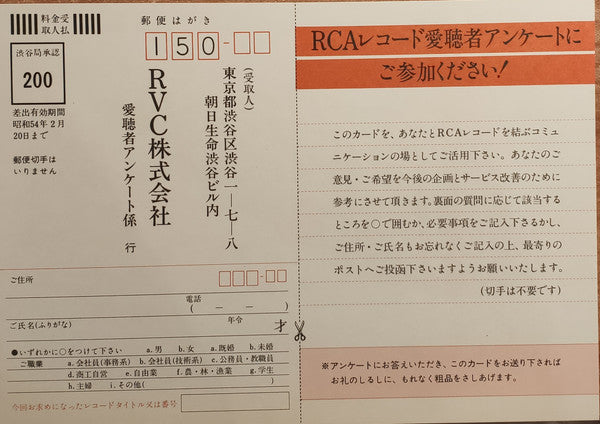 料金受
取人払
渋谷局承認
200
差出有効期間
昭和54年2月
20日まで
郵便切手は
いりません
郵便はがき
150-
(受取人)
東京都渋谷区渋谷一―七―八
朝日生命渋谷ビル内
RVC株式会社
愛聴者アンケート係 行
ご住所
電話
( - - )
ご氏名(ふりがな)
年令
才
●いずれかに○をつけて下さい a.男 b.女 a.既婚 b.未婚
ご職業 a.会社員(事務系) b.会社員(技術系) c.公務員・教職員
d.商工自営 e.自由業 f.農・林・漁業 g.学生
h.主婦 i.その他( )
今回お求めになったレコードタイトル又は番号
RCAレコード愛聴者アンケートに
ご参加ください!
このカードを、あなたとRCAレコードを結ぶコミュ
ニケーションの場としてご活用下さい。あなたのご
意見・ご希望を今後の企画とサービス改善のために
参考にさせて頂きます。裏面の質問に応じて該当する
ところを○で囲むか、必要事項をご記入下さるかし、
ご住所・ご氏名もお忘れなくご記入の上、最寄りの
ポストへご投函下さいますようお願いいたします。
(切手は不要です)
※アンケートにお答えいただき、このカードをお送り下されば
お礼のしるしに、もれなく粗品をさしあげます。